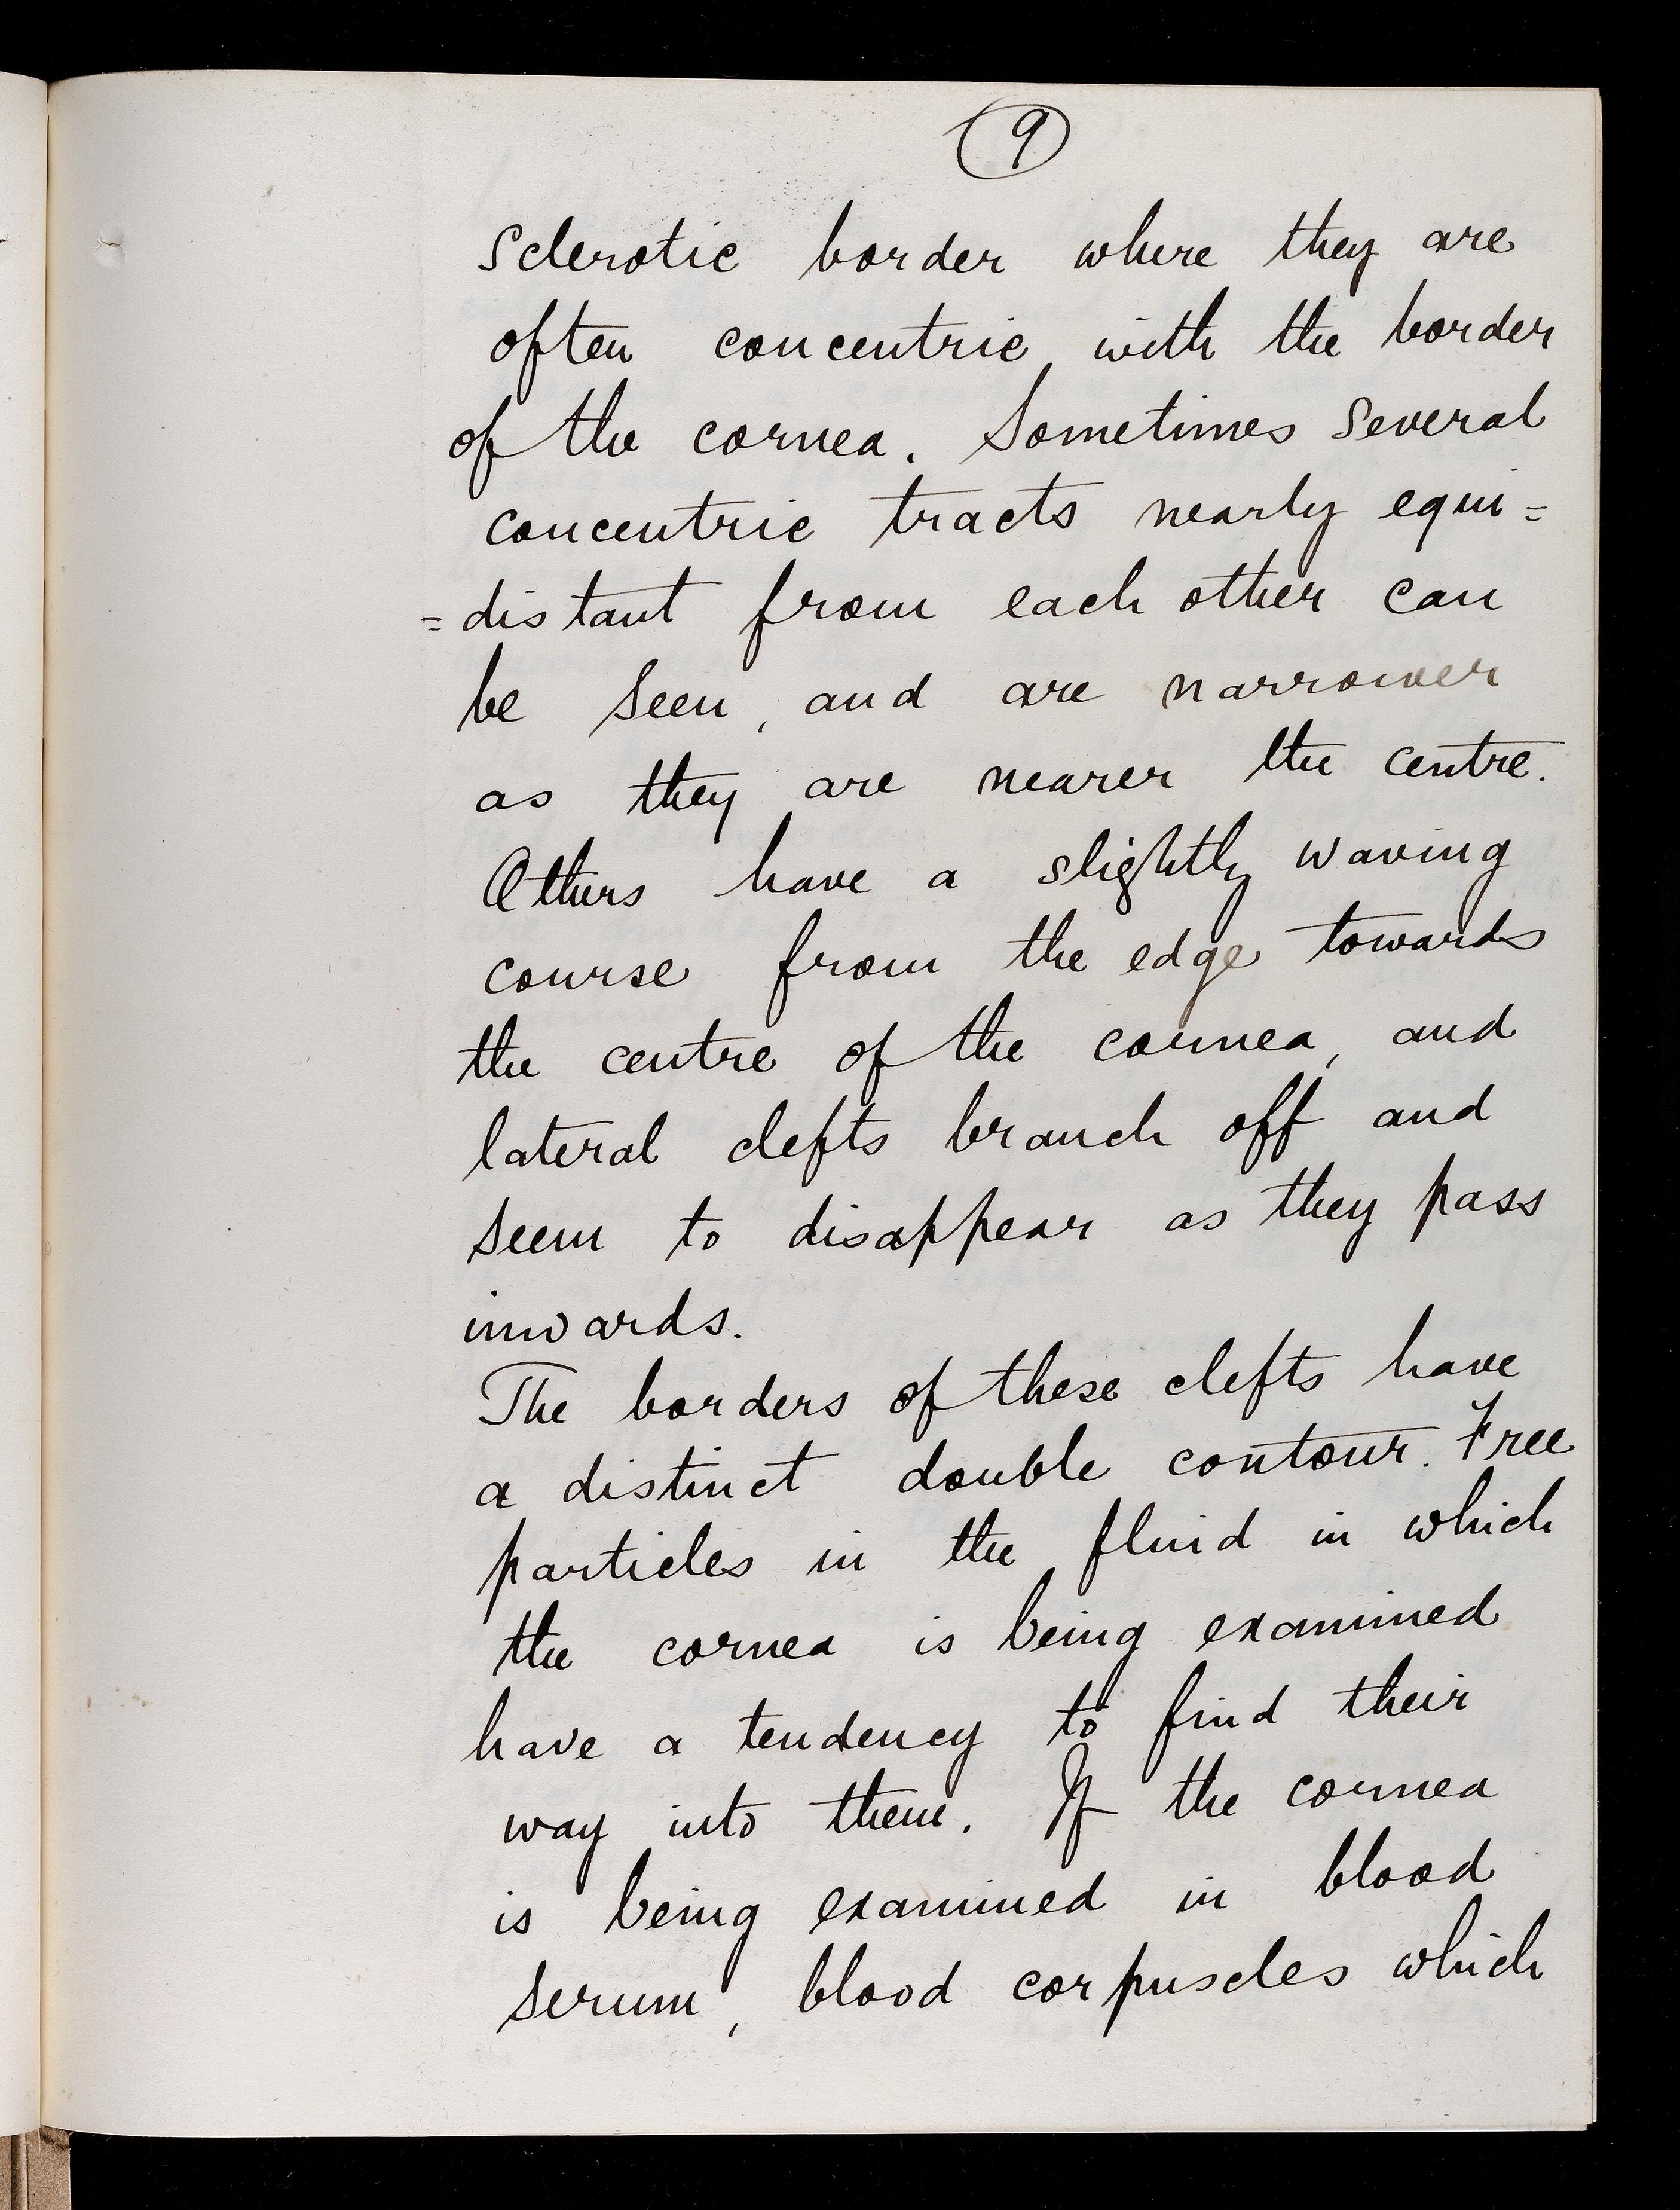 9
Sclerotic border where they are
often concentric with the border
of the cornea. Sometimes several
concentric tracts nearly equi=
=distant from each other can
be seen, and are narrower
as they are nearer the centre.
Others have a slightly waving
course from the edge towards
the centre of the cornea, and
lateral clefts branch off and
seem to disappear as they pass
inwards.
The borders of these clefts have
a distinct double contour. Free
particles in the fluid in which
the cornea is being examined
have a tendency to find their
way into them. If the cornea
is being examined in blood
serum, blood corpuscles which